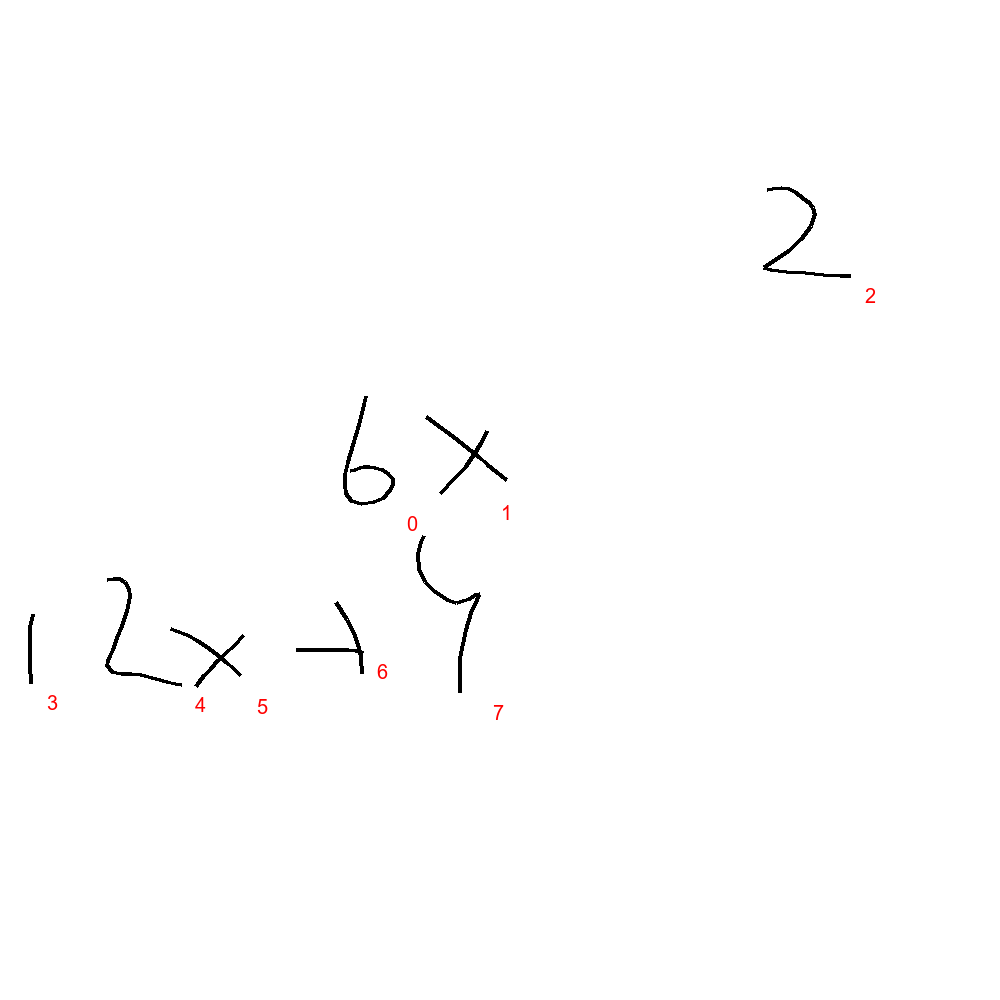 2
2
6x
0 1
12x y
3 4 5 6 7